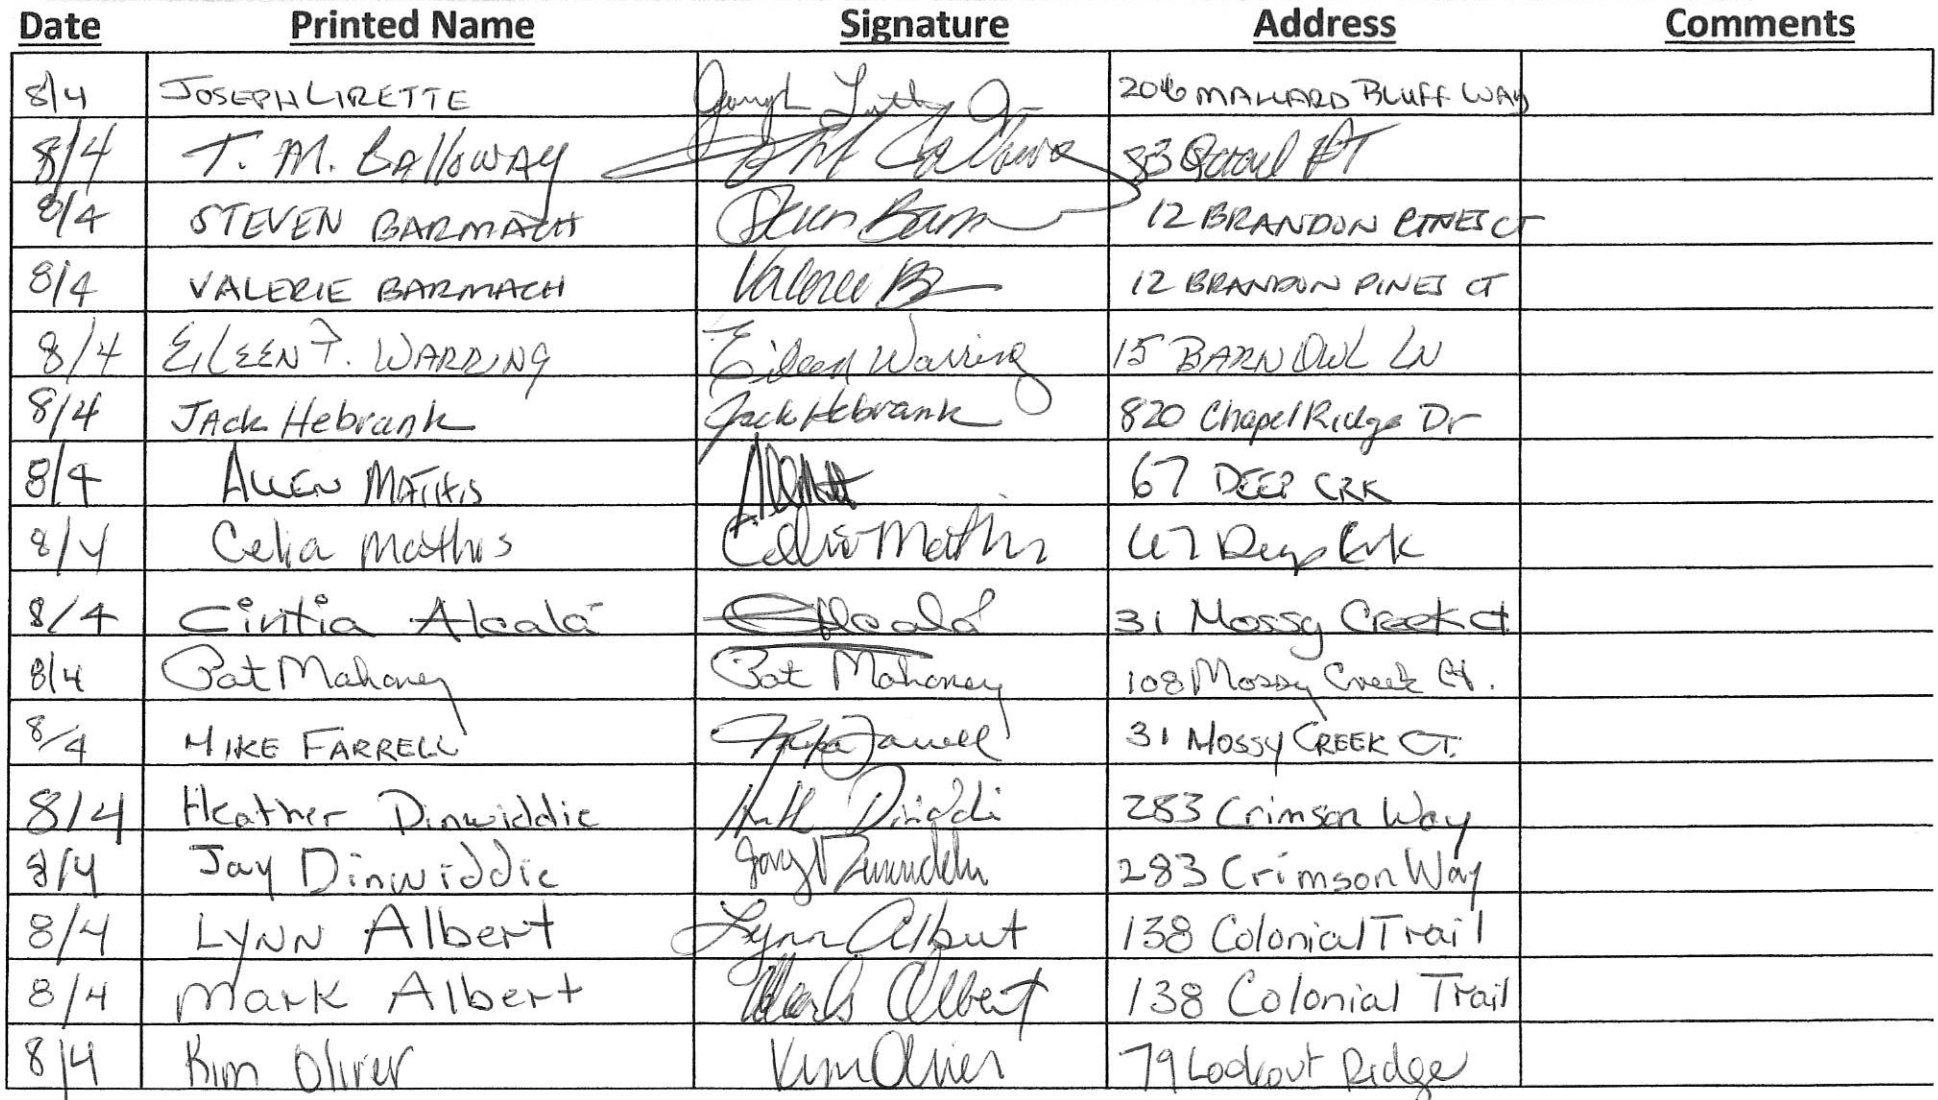 Date Printed Name Signature Address Comments
8/4 JOSEPH LIRETTE 206 MALLARD BLUFF WAY
8/4 T. M. CALLOWAY T M Calloway 83 Quail PT
8/4 STEVEN BARMACH 12 BRANDON PINES CT
8/4 VALERIE BARMACH Valerie B 12 BRANDON PINES CT
8/4 EILEEN F. WARRING Eileen Warring 15 BARN OWL LN
8/4 JACK Hebrank Jack Hebrank 820 Chapel Ridge Dr
8/4 ALLEN MATHIS 67 DEEP CRK
8/4 Celia Mathis Celia Mathis 67 Deep Crk
8/4 Cintia Alcalá CAlcalá 31 Mossy Creek ct
8/4 Pat Mahoney Pat Mahoney 108 Mossy Creek Ct.
8/4 MIKE FARRELL Farrell 31 MOSSY CREEK CT.
8/4 Heather Dinwiddie 283 Crimson Way
8/4 Jay Dinwiddie Jay Dinwiddie 283 Crimson Way
8/4 LYNN Albert Lynn Albert 138 Colonial Trail
8/4 Mark Albert Mark Albert 138 Colonial Trail
8/4 Kim Oliver Kim Oliver 79 Lookout Ridge